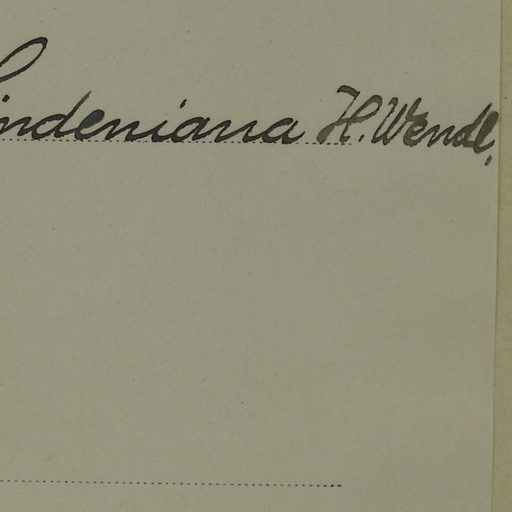 Lindeniana H. Wendl.